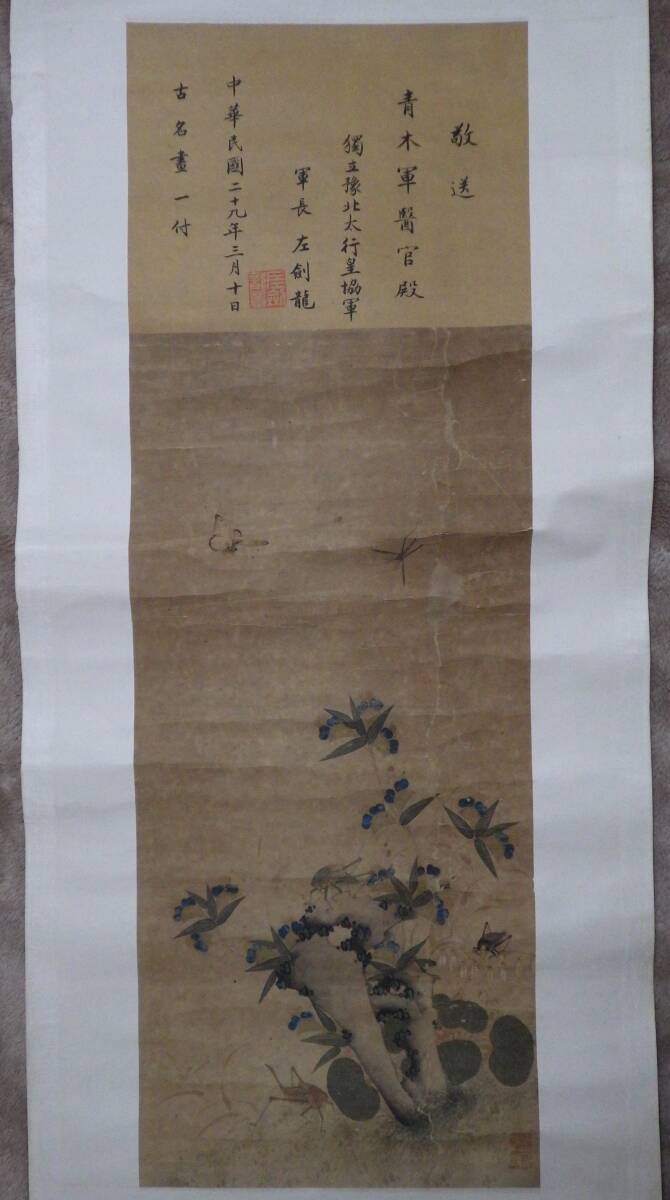 敬送
青木軍醫官殿
獨立豫北太行皇協軍
軍長 左劍龍
中華民國二十九年三月十日
古名畫一付